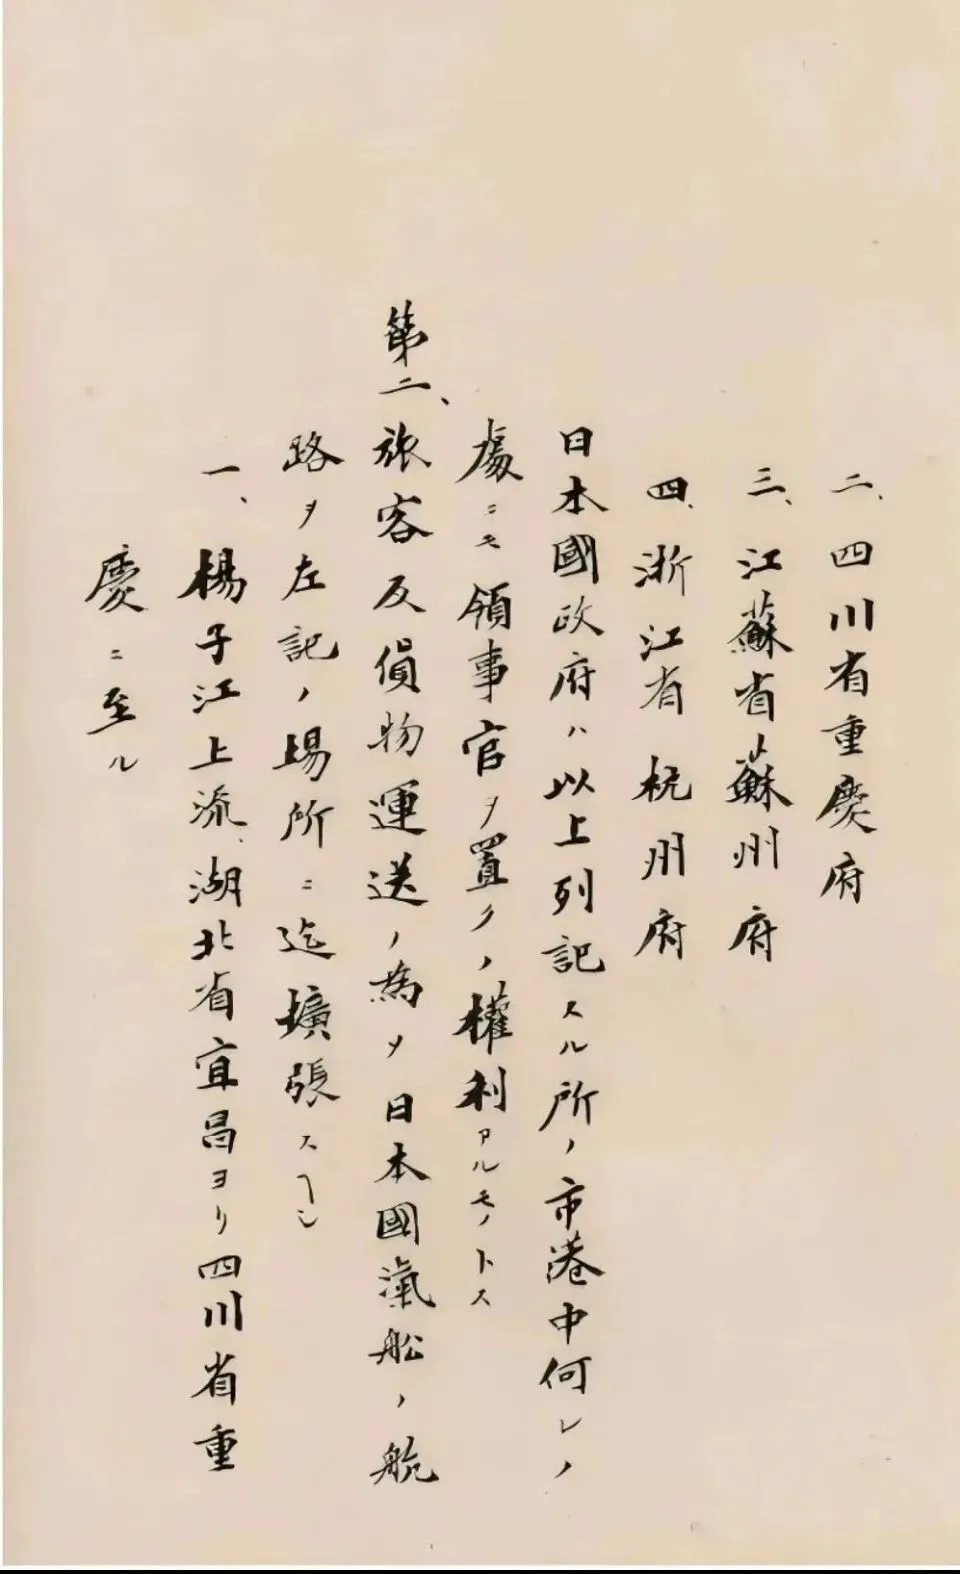 二、四川省重慶府
三、江蘇省蘇州府
四、浙江省杭州府
日本國政府ハ以上列記スル所ノ市港中何レノ
處ニモ領事官ヲ置クノ權利アルモノトス
第二、旅客及貨物運送ノ為メ日本國汽舩ノ航
路ヲ左記ノ場所ニ迄擴張スヘシ
一、楊子江上流、湖北省宜昌ヨリ四川省重
慶ニ至ル